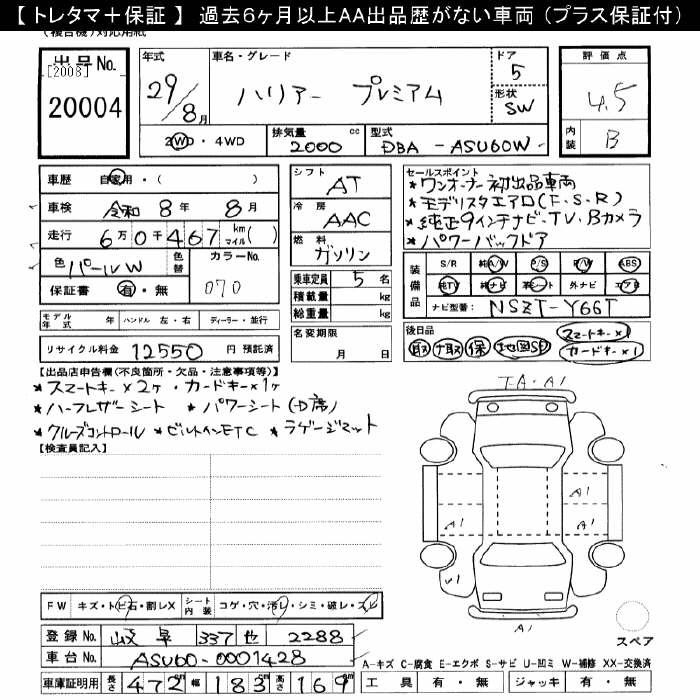 【トレタマ＋保証】過去6ヶ月以上AA出品歴がない車両（プラス保証付）
(複合機)対応用紙
出品No.
[2008]
20004
年式 29/8月
車名・グレード
ハリアー プレミアム
ドア 5
形状 SW
評価点
4.5
内装 B
2WD・4WD
排気量 2000 cc
型式 DBA - ASU60W -
車歴 自家用・( )
車検 令和 8年 8月
走行 6万0千467 km マイル( )
色 パールW 色替 カラーNo. 070
保証書 有・無
モデル年式 年 ハンドル 左・右 ディーラー・並行
リサイクル料金 12550 円 預託済
シフト AT
冷房 AAC
燃料 ガソリン
乗車定員 5 名
積載量 kg
総重量 kg
名変期限
月 日
セールスポイント
★ワンオーナー初出品車両
★モデリスタエアロ(F.S.R)
★純正9インチナビ・TV.Bカメラ
★パワーバックドア
装備品 S/R 純A/W P/S P/W ABS
純TV 純ナビ 革シート 外ナビ エアB
ナビ型番: NSZT-Y66T
後日品
取 ナ取 保 地図SD スマートキー×1
カードキー×1
【出品店申告欄(不良箇所・欠品・注意事項等)】
★スマートキー×2ヶ・カードキー×1ヶ
★ハーフレザーシート ★パワーシート(D席)
★クルーズコントロール ★ビルトインETC ★ラゲージマット
【検査員記入】
A1
A1
A1
A1
FW キズ・トビ石・割レX シート内装 コゲ・穴・汚レ・シミ・破レ・スレ
スペア
登録No. 岐阜 337 せ 2288
車台No. ASU60-0001428
A-キズ C-腐食 E-エクボ S-サビ U-凹ミ W-補修 XX-交換済
車庫証明用 長さ 472 cm 幅 183 cm 高さ 169 cm
工具 有・無 ジャッキ 有・無